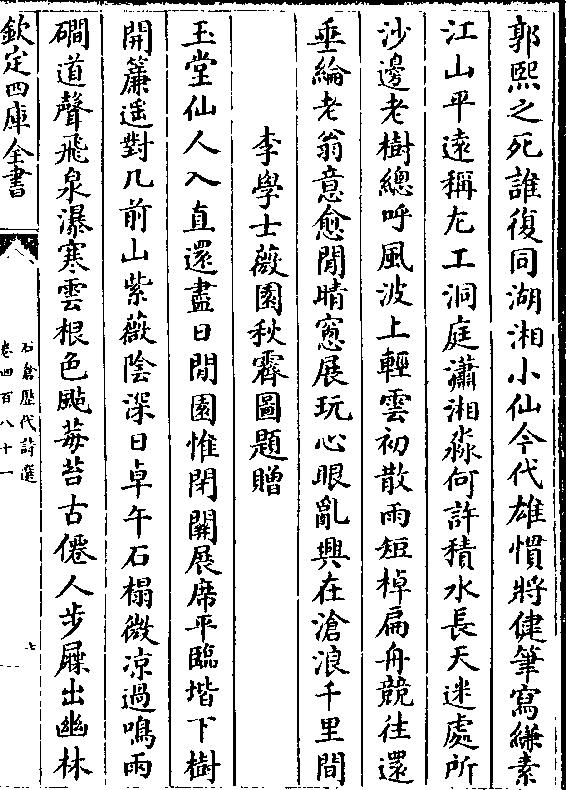 郭熙之死誰復同湖湘小仙今代雄慣將健筆寫縑素
江山平遠稱尤工洞庭瀟湘淼何許積水長天迷處所
沙邊老樹總呼風波上輕雲初散雨短棹扁舟競往還
垂綸老翁意愈閒晴窻展玩心眼亂興在滄浪千里間
李學士薇園秋霽圖題贈
玉堂仙人入直還盡日閒園惟閉關展席平臨堦下樹
開簾遥對几前山紫薇陰深日卓午石榻微凉過鳴雨
磵道聲飛泉瀑寒雲根色颭莓苔古僊人步屧出幽林
欽定四庫全書
石倉歷代詩選
卷四百八十一
七